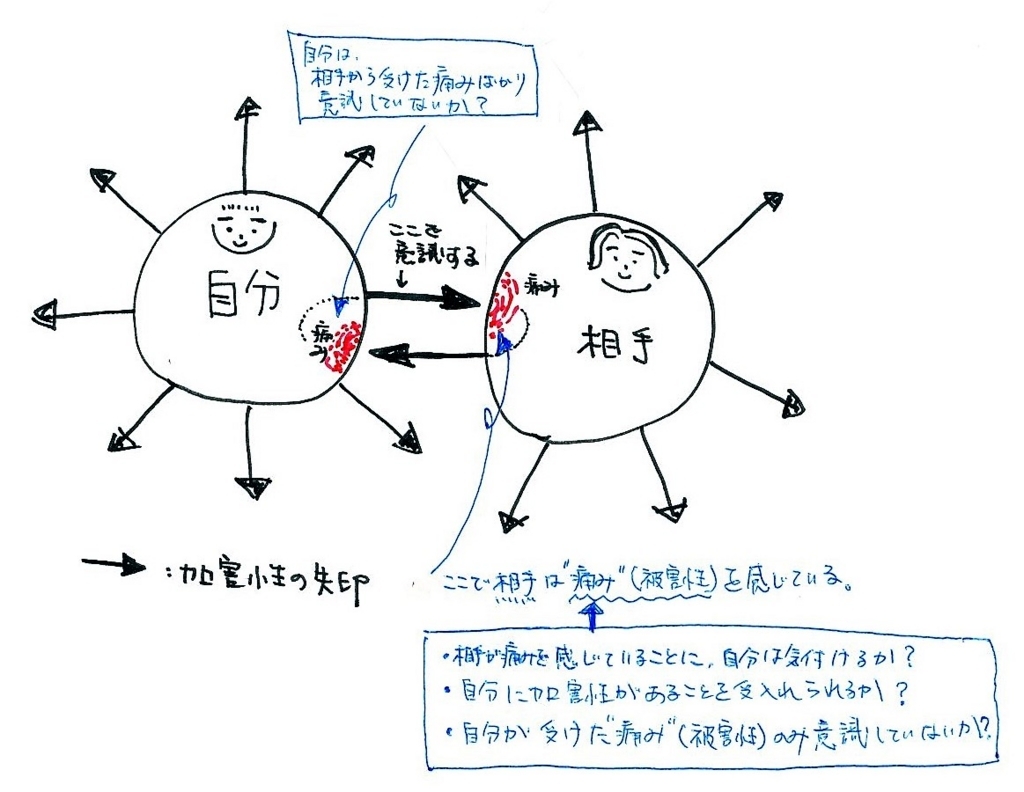 自分は、
相手から受けた痛みばかり
意識していないか？
ここで
意識する
自分
痛み
痛み
相手
：加害性の矢印
ここで相手は"痛み"(被害性)を感じている。
・相手が痛みを感じていることに、自分は気付けるか？
・自分に加害性があることを受入れられるか？
・自分が受けた"痛み"(被害性)のみ意識していないか？